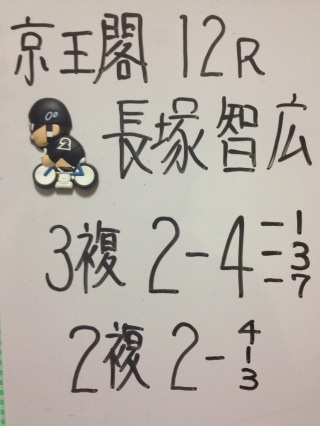 京王閣 12R
2
長塚智広
3複 2-4-1
-3
-7
2複 2-4
1
3